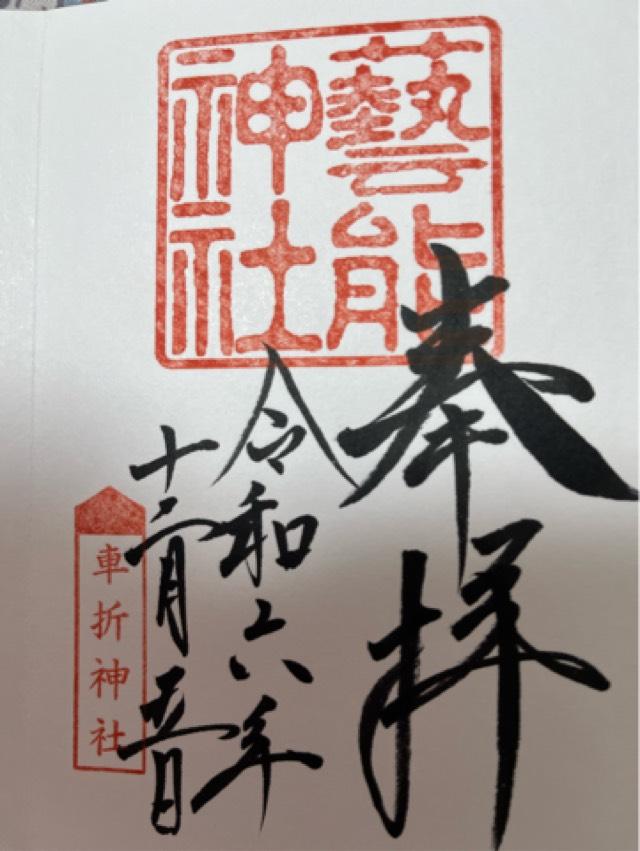 藝能
神社
奉拝
令和六年
十二月五日
車折神社